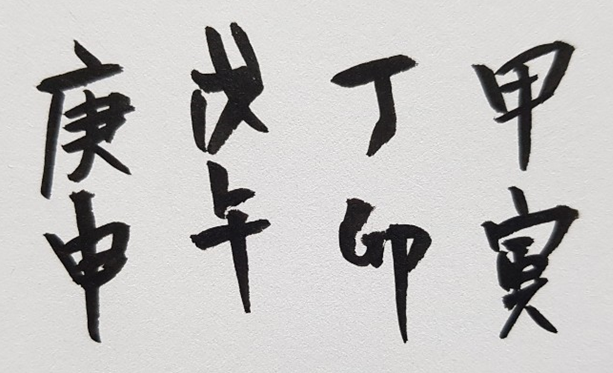 甲寅
丁卯
戊午
庚申